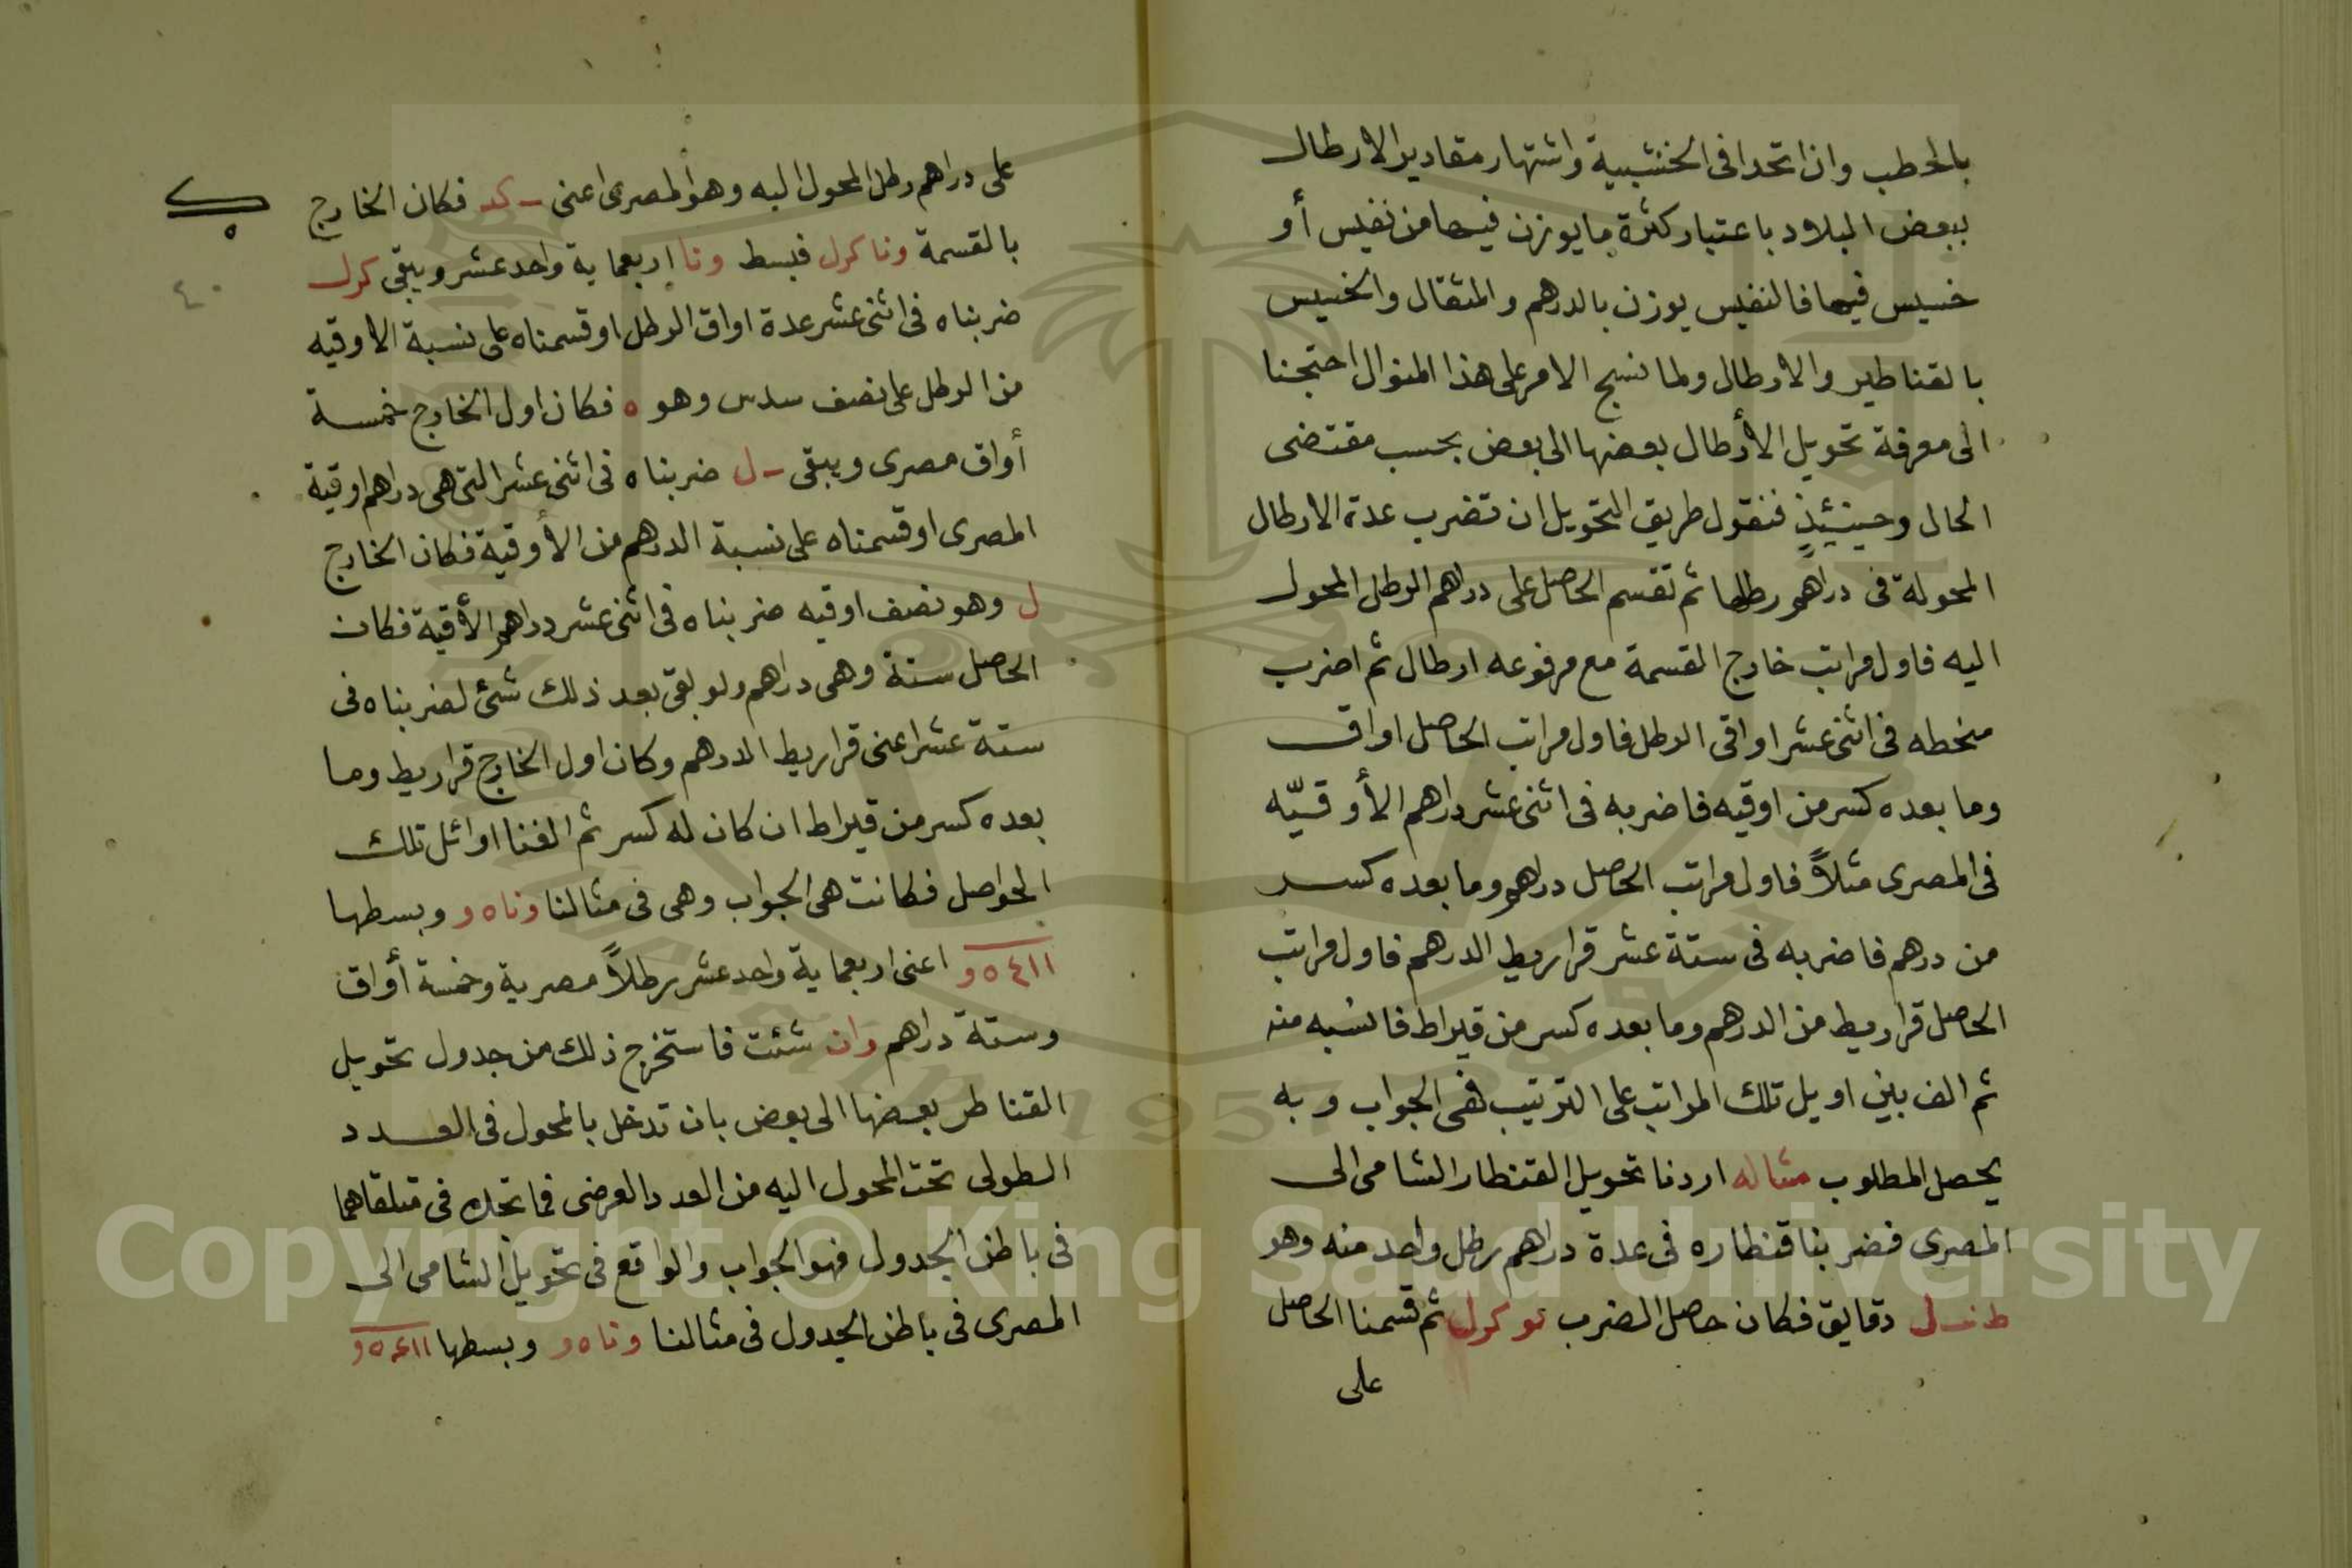 بالحطب وان اتحدا فى الخشبية واشتهار مقادير الارطال
ببعض البلاد باعتبار كثرة ما يوزن فيها من نفيس أو
خسيس فيها فالنفيس يوزن بالدرهم والمثقال والخسيس
بالقناطير والارطال ولما نسج الامر على هذا المنوال احتجنا
الى معرفة تحويل الأرطال بعضها الى بعض بحسب مقتضى
الحال وحينئذٍ فنقول طريق التحويل ان تضرب عدة الارطال
المحولة فى دراهم رطلها ثم تقسم الحاصل على دراهم الرطل المحول
اليه فاول مراتب خارج القسمة مع مرفوعه ارطال ثم اضرب
منحطه فى اثنى عشر اواقى الرطل فاول مراتب الحاصل اواق
وما بعده كسر من اوقيه فاضربه فى اثنى عشر دراهم الأوقيّه
فى المصرى مثلاً فاول مراتب الحاصل دراهم وما بعده كسر
من درهم فاضربه فى ستة عشر قراريط الدرهم فاول مراتب
الحاصل قراريط من الدرهم وما بعده كسر من قيراط فانسبه منه
ثم الف بين اويل تلك المراتب على الترتيب فهى الجواب وبه
يحصل المطلوب مثاله اردنا تحويل القنطار الشامى الى
المصرى فضربنا قنطاره فى عدة دراهم رطل واحد منه وهو
دقايق فكان حاصل الضرب كرل ثم قسمنا الحاصل
على
على دراهم رطل المحول اليه وهو المصرى اعنى كد فكان الخارج
بالقسمة ونا كرل فبسط ونا اربعماية واحد عشر ويبقى كرل
ضربناه فى اثنى عشر عدة اواق الرطل او قسمناه على نسبة الاوقيه
من الرطل على نصف سدس وهو ه فكان اول الخارج خمسة
أواق مصرى ويبقى ل ضربناه فى اثنى عشر التى هى دراهم اوقية
المصرى او قسمناه على نسبة الدرهم من الأوقية فكان الخارج
ل وهو نصف اوقيه ضربناه فى اثنى عشر دراهم الأقية فكان
الحاصل ستة وهى دراهم ولو بقى بعد ذلك شئ لضربناه فى
ستة عشر اعنى قراريط الدرهم وكان اول الخارج قراريط وما
بعده كسر من قيراط ان كان له كسر ثم الفنا اوائل تلك
الحواصل فكانت هى الجواب وهى فى مثالنا ونا ه و وبسطها
٤١١ ٥ و اعنى اربعماية واحد عشر رطلاً مصرية وخمسة أواق
وستة دراهم وان شئت فاستخرج ذلك من جدول تحويل
القناطر بعضها الى بعض بان تدخل بالمحول فى العدد
الطولى تحت المحول اليه من العدد العرضى فما تجده فى متلقاهما
فى باطن الجدول فهو الجواب والواقع فى تحويل الشامى الى
المصرى فى باطن الجدول فى مثالنا ونا ه و وبسطها ٤١١ ٥ و
٤٠
Copyright © King Saud University
1957